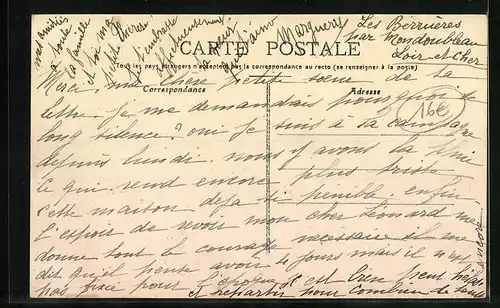 CARTE POSTALE
Tous les pays étrangers n'acceptent pas la correspondance au recto (se renseigner à la poste)
Correspondance
Adresse
Les Berruères
par Mondoubleau
Loir-et-Cher
16€
Merci, ma chère petite sœur de ta
lettre. je me demandais pourquoi ce
long silence? oui je suis à la campagne
depuis lundi. nous y avons la pluie
ce qui rend encore plus triste
cette maison déjà si pénible. enfin
L'espoir de revoir mon cher Léonard me
donne tout le courage nécessaire il me
dit qu'il pense avoir 4 jours mais il n'est
pas fixé pour l'époque
et repartir pour combien de temps
encore
mes amitiés
à toute
ta famille
et toi ma
petite
affectueusement
Marguery